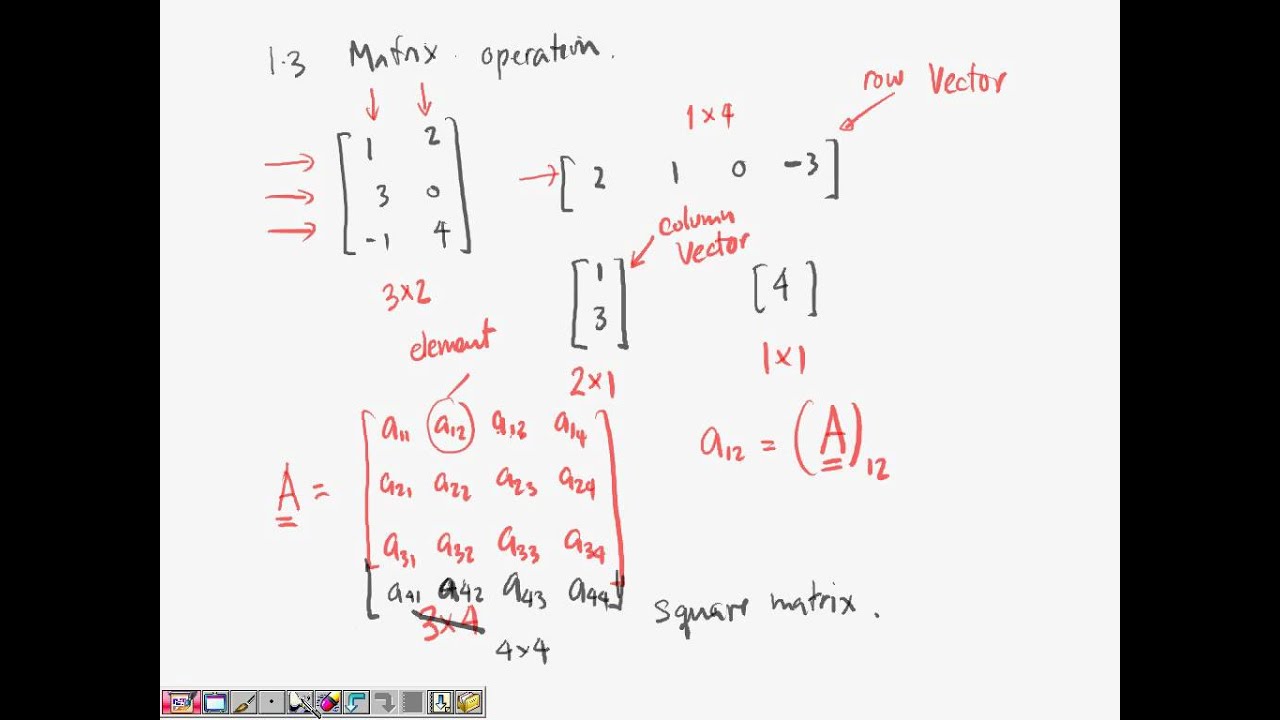 1.3 Matrix operation.
row Vector
1×4
1 2
3 0
-1 4
3×2
2 1 0 -3
column
Vector
1
3
2×1
4
1×1
element
A =
a11 a12 a12 a14
a21 a22 a23 a24
a31 a32 a33 a34
a41 a42 a43 a44
3×4
4×4
a12 = (A)12
square matrix.